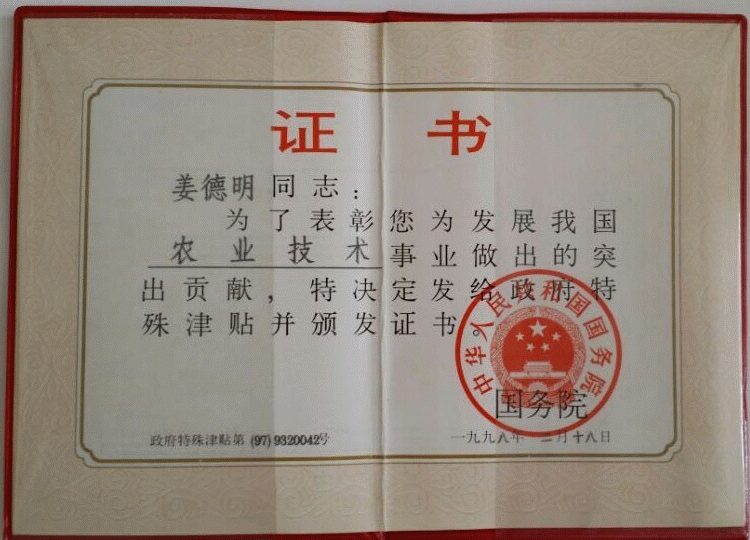 证 书
姜德明同志：
为了表彰您为发展我国
农业技术事业做出的突
出贡献，特决定发给政府特
殊津贴并颁发证书。
中华人民共和国国务院
国务院
政府特殊津贴第(97)9320042号
一九九八年 二月十八日